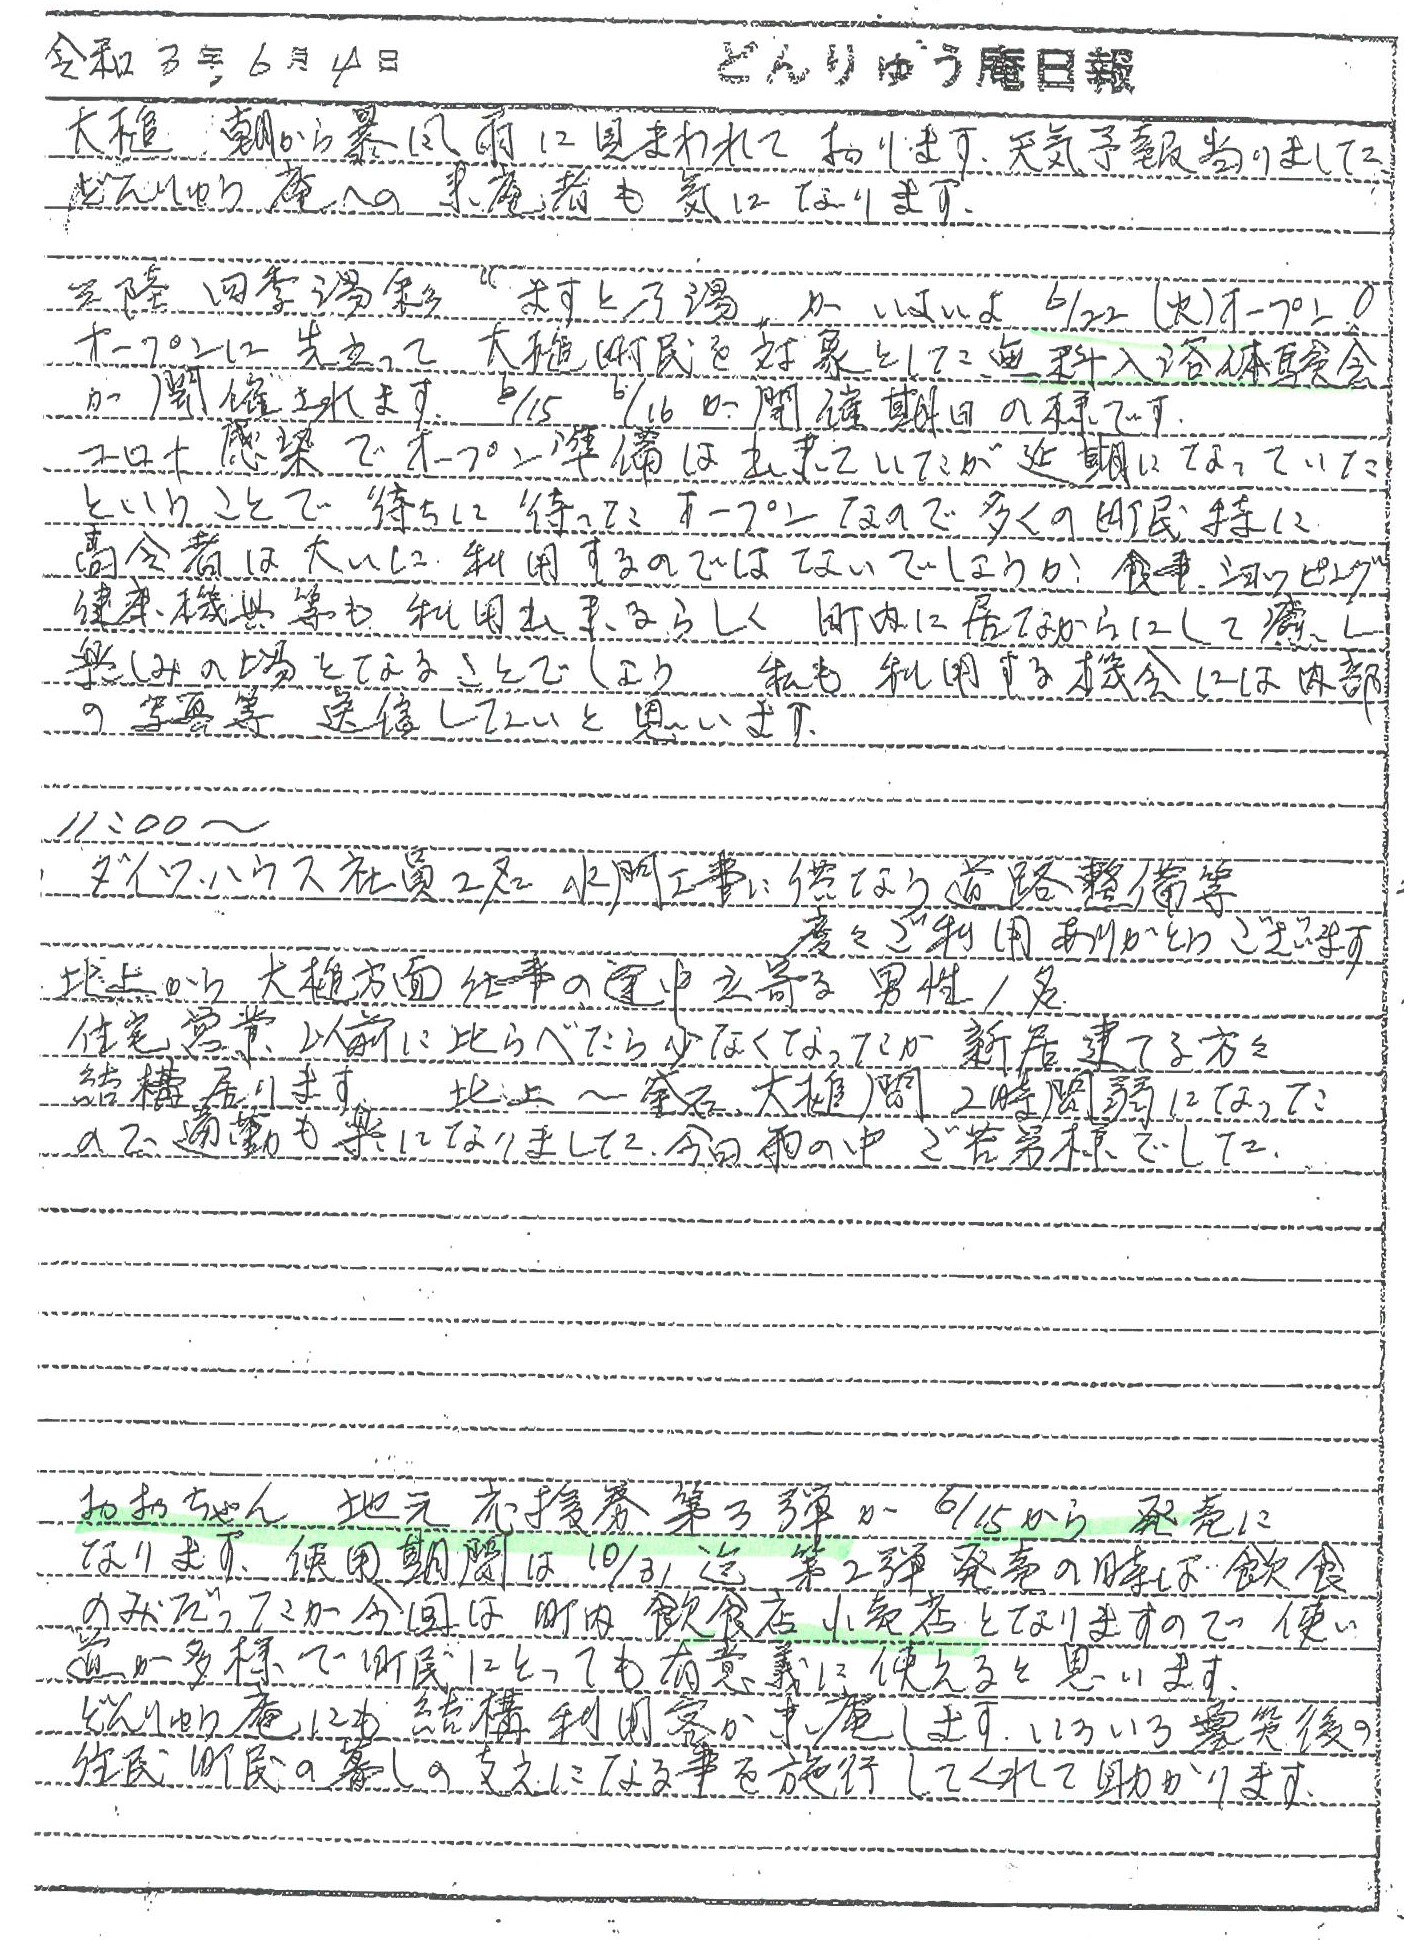 令和3年6月4日
どんりゅう庵日報
大槌 朝から暴風雨に見まわれております.天気予報当りました
どんりゅう庵への来庵者も気になります.
三陸四季湯彩“ますと乃湯„がいよいよ6/22(火)オープン!
オープンに先立って大槌町民を対象とした無料入浴体験会
が開催されます. 6/15 6/16が開催期日の様です.
コロナ感染でオープン準備は出来ていたが延期になっていた
ということで待ちに待ったオープンなので多くの町民特に
高令者は大いに利用するのではないでしょうか.食事.ショッピング
健康機具等も利用出来るらしく 町内に居ながらにして癒し
楽しみの場となることでしょう 私も利用する機会には内部
の写真等 送信したいと思います.
11:00〜
ダイワハウス社員2名 水門工事に伴なう道路整備等
度々ご利用ありがとうございます
北上から大槌方面仕事の途中立寄る 男性1名
住宅営業 以前に比らべたら少なくなったが新居建てる方々
結構居ります 北上〜釜石、大槌間 2時間弱になった
ので通勤も楽になりました.今日雨の中 ご苦労様でした.
おおちゃん 地元応援券第3弾が 6/15から発売に
なります.使用期間は10/31迄 第2弾発売の時は飲食
のみだったが今回は町内飲食店小売店となりますので使い
道が多様で町民にとっても有意義に使えると思います.
どんりゅう庵にも結構利用客が来庵します.いろいろ震災後の
住民町民の暮しの支えになる事を施行してくれて助かります.